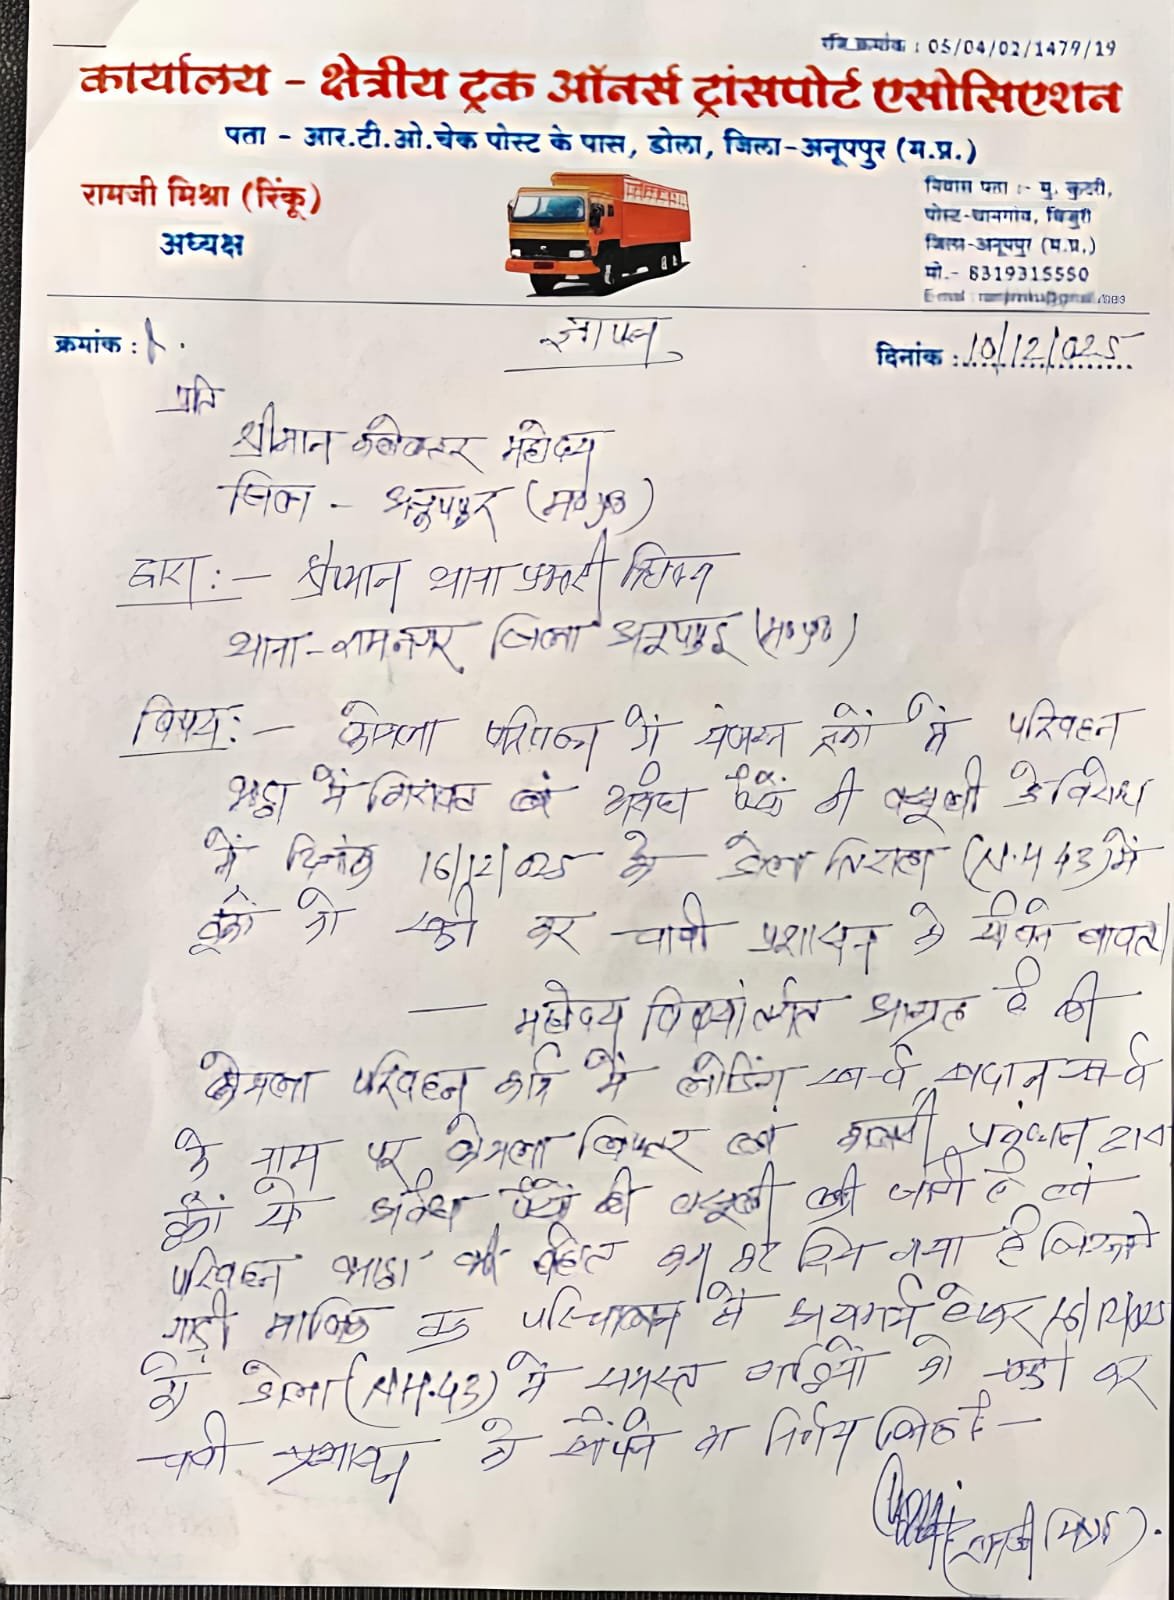 रजि क्रमांक : 05/04/02/1479/19
कार्यालय - क्षेत्रीय ट्रक ऑनर्स ट्रांसपोर्ट एसोसिएशन
पता - आर.टी.ओ.चेक पोस्ट के पास, डोला, जिला-अनूपपुर (म.प्र.)
रामजी मिश्रा (रिंकू)
अध्यक्ष
निवास पता :- मु. कुटरी,
पोस्ट-धानगांव, बिजुरी
जिला-अनूपपुर (म.प्र.)
मो.- 8319315550
E-mail :
क्रमांक :
ज्ञापन
दिनांक : 10/12/025
प्रति
श्रीमान कलेक्टर महोदय
जिला - अनूपपुर (म०प्र०)
द्वारा :- श्रीमान थाना प्रभारी
थाना - रामनगर जिला अनूपपुर (म०प्र०)
विषय :- कोयला परिवहन में संलग्न ट्रकों में परिवहन
भाड़ा में गिरावट एवं अवैध पैसे की वसूली के विरोध
में दिनांक 16/12/025 को डोला तिराहा (N.H 43) में
ट्रकों को खड़ी कर चाबी प्रशासन को सौंपने बावत।
— महोदय विषयांतर्गत आग्रह है की
कोयला परिवहन कार्य में लोडिंग खर्च खदान खर्च
के नाम पर कोयला लिफ्टर एवं कालरी प्रबंधन द्वारा
ट्रकों से अवैध पैसों की वसूली की जाती है एवं
परिवहन भाड़ा भी बहुत कम कर दिया गया है जिससे
गाड़ी मालिक ट्रक परिचालन में असमर्थ होकर 16/12/025
को डोला (NH.43) में समस्त गाड़ियों को खड़ा कर
चाबी प्रशासन को सौंपने का निर्णय लिए है —
(रामजी मिश्रा).